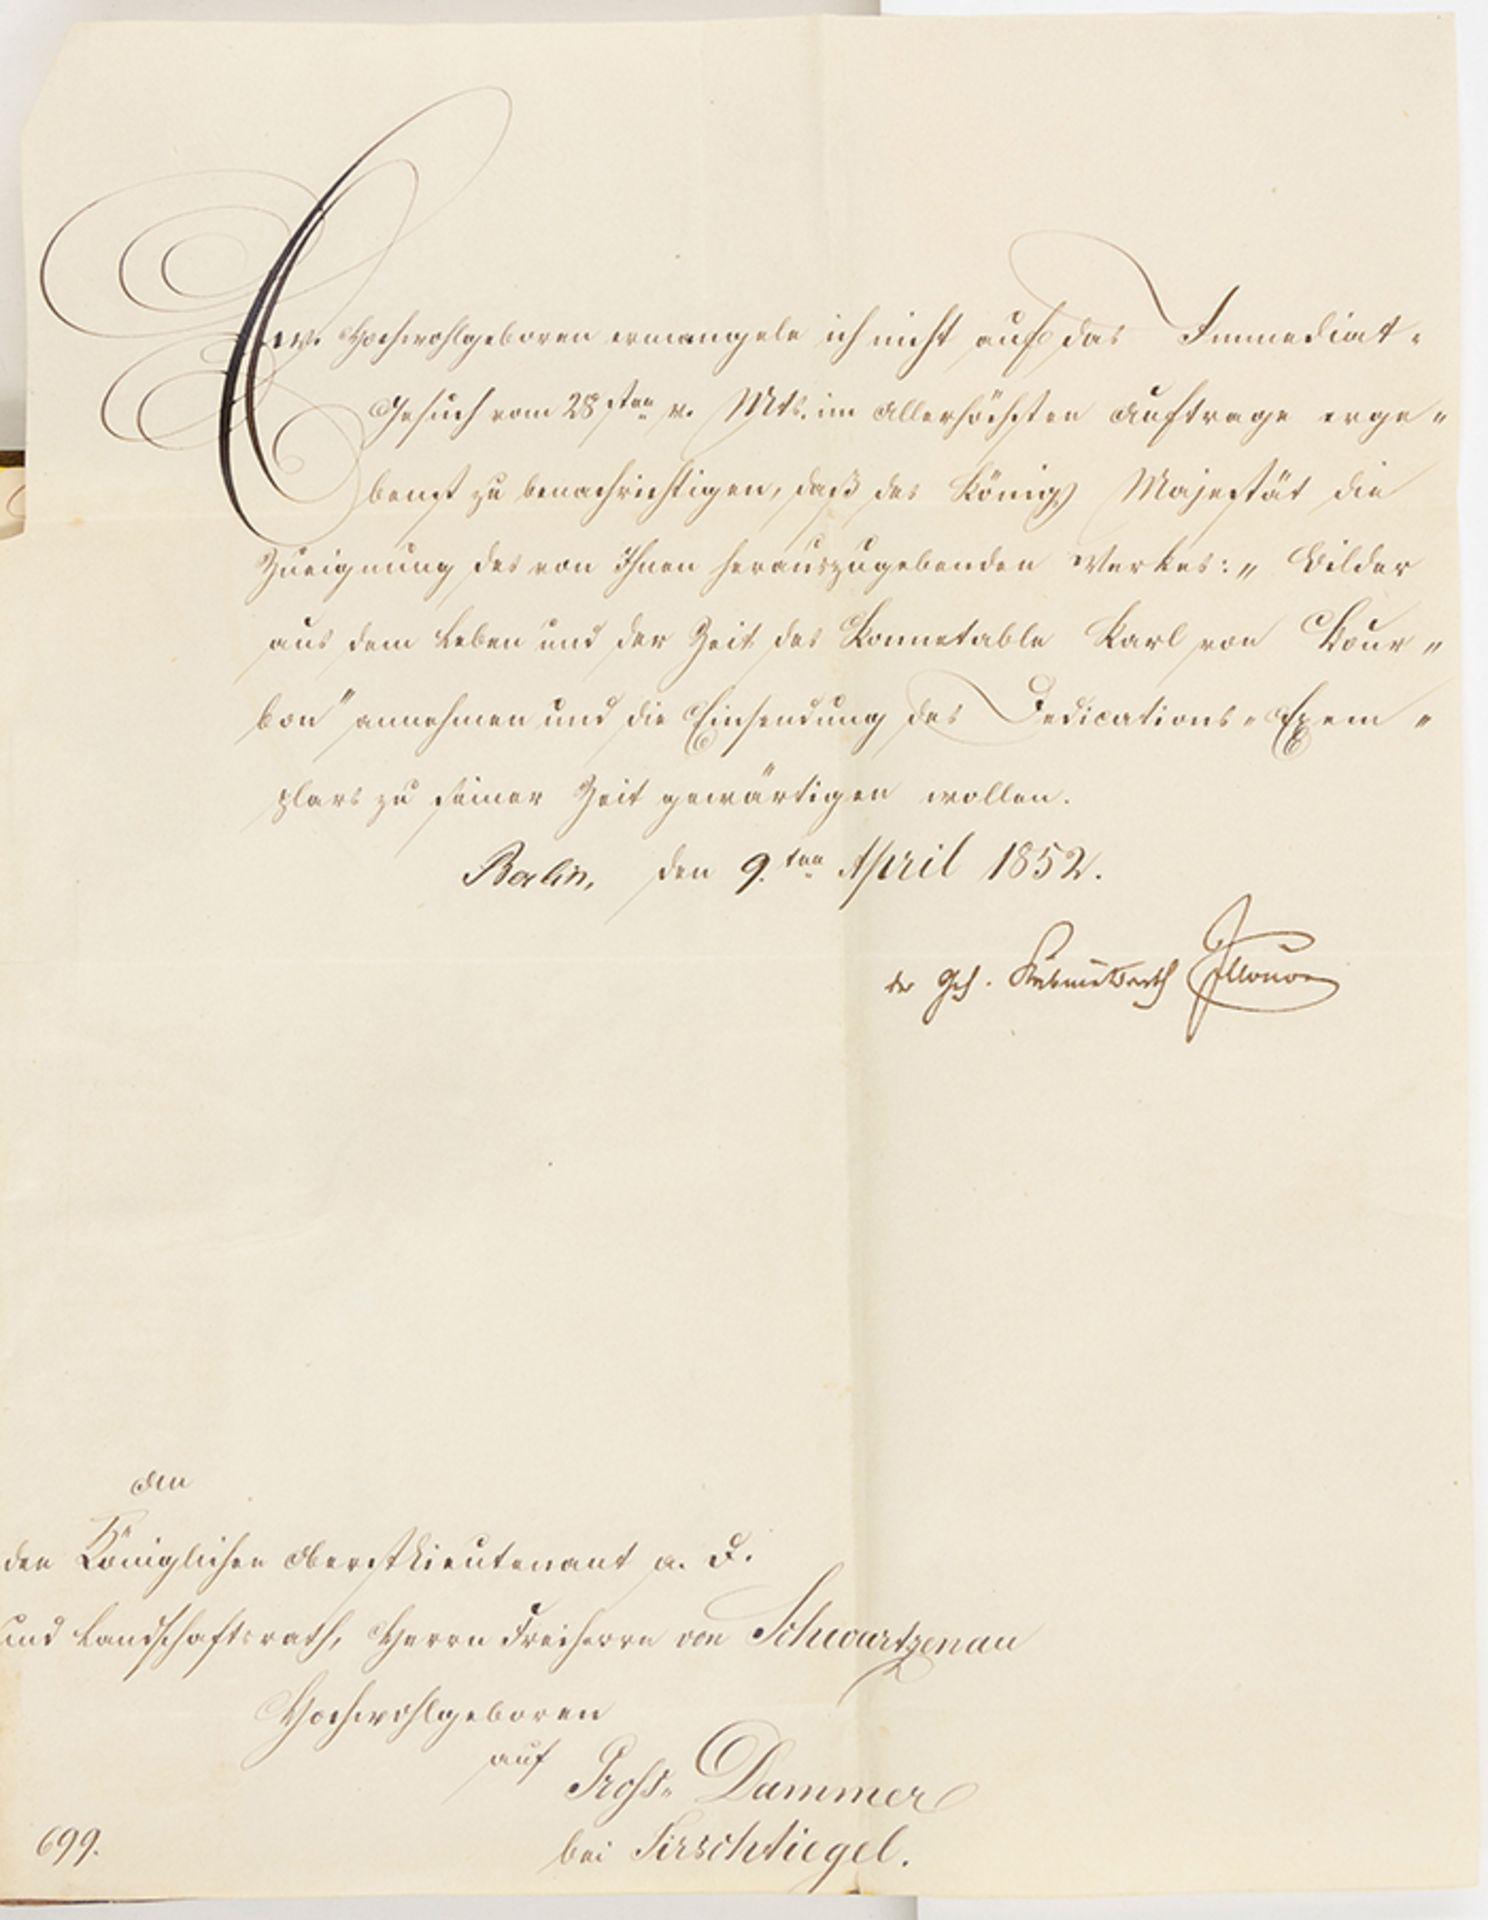 Ew. Hochwohlgeboren ermangele ich nicht auf das Immediat-
Gesuch vom 28sten v. Mts. im Allerhöchsten Auftrage erge-
benst zu benachrichtigen, daß des Königs Majestät die
Zueignung des von Ihnen herauszugebenden Werkes: „Bilder
aus dem Leben und der Zeit des Konnetable Karl von Bour-
bon" annehmen und die Einsendung des Dedications-Exem-
plars zu seiner Zeit gewärtigen wollen.
Berlin, den 9.ten April 1852.
der Geh. Kabinetsrath Illaire
An
den Königlichen Oberstlieutenant a. D.
und Landschaftsrath, Herrn Freiherrn von Schwartzenau
Hochwohlgeboren
auf Groß-Dammer
bei Tirschtiegel.
699.